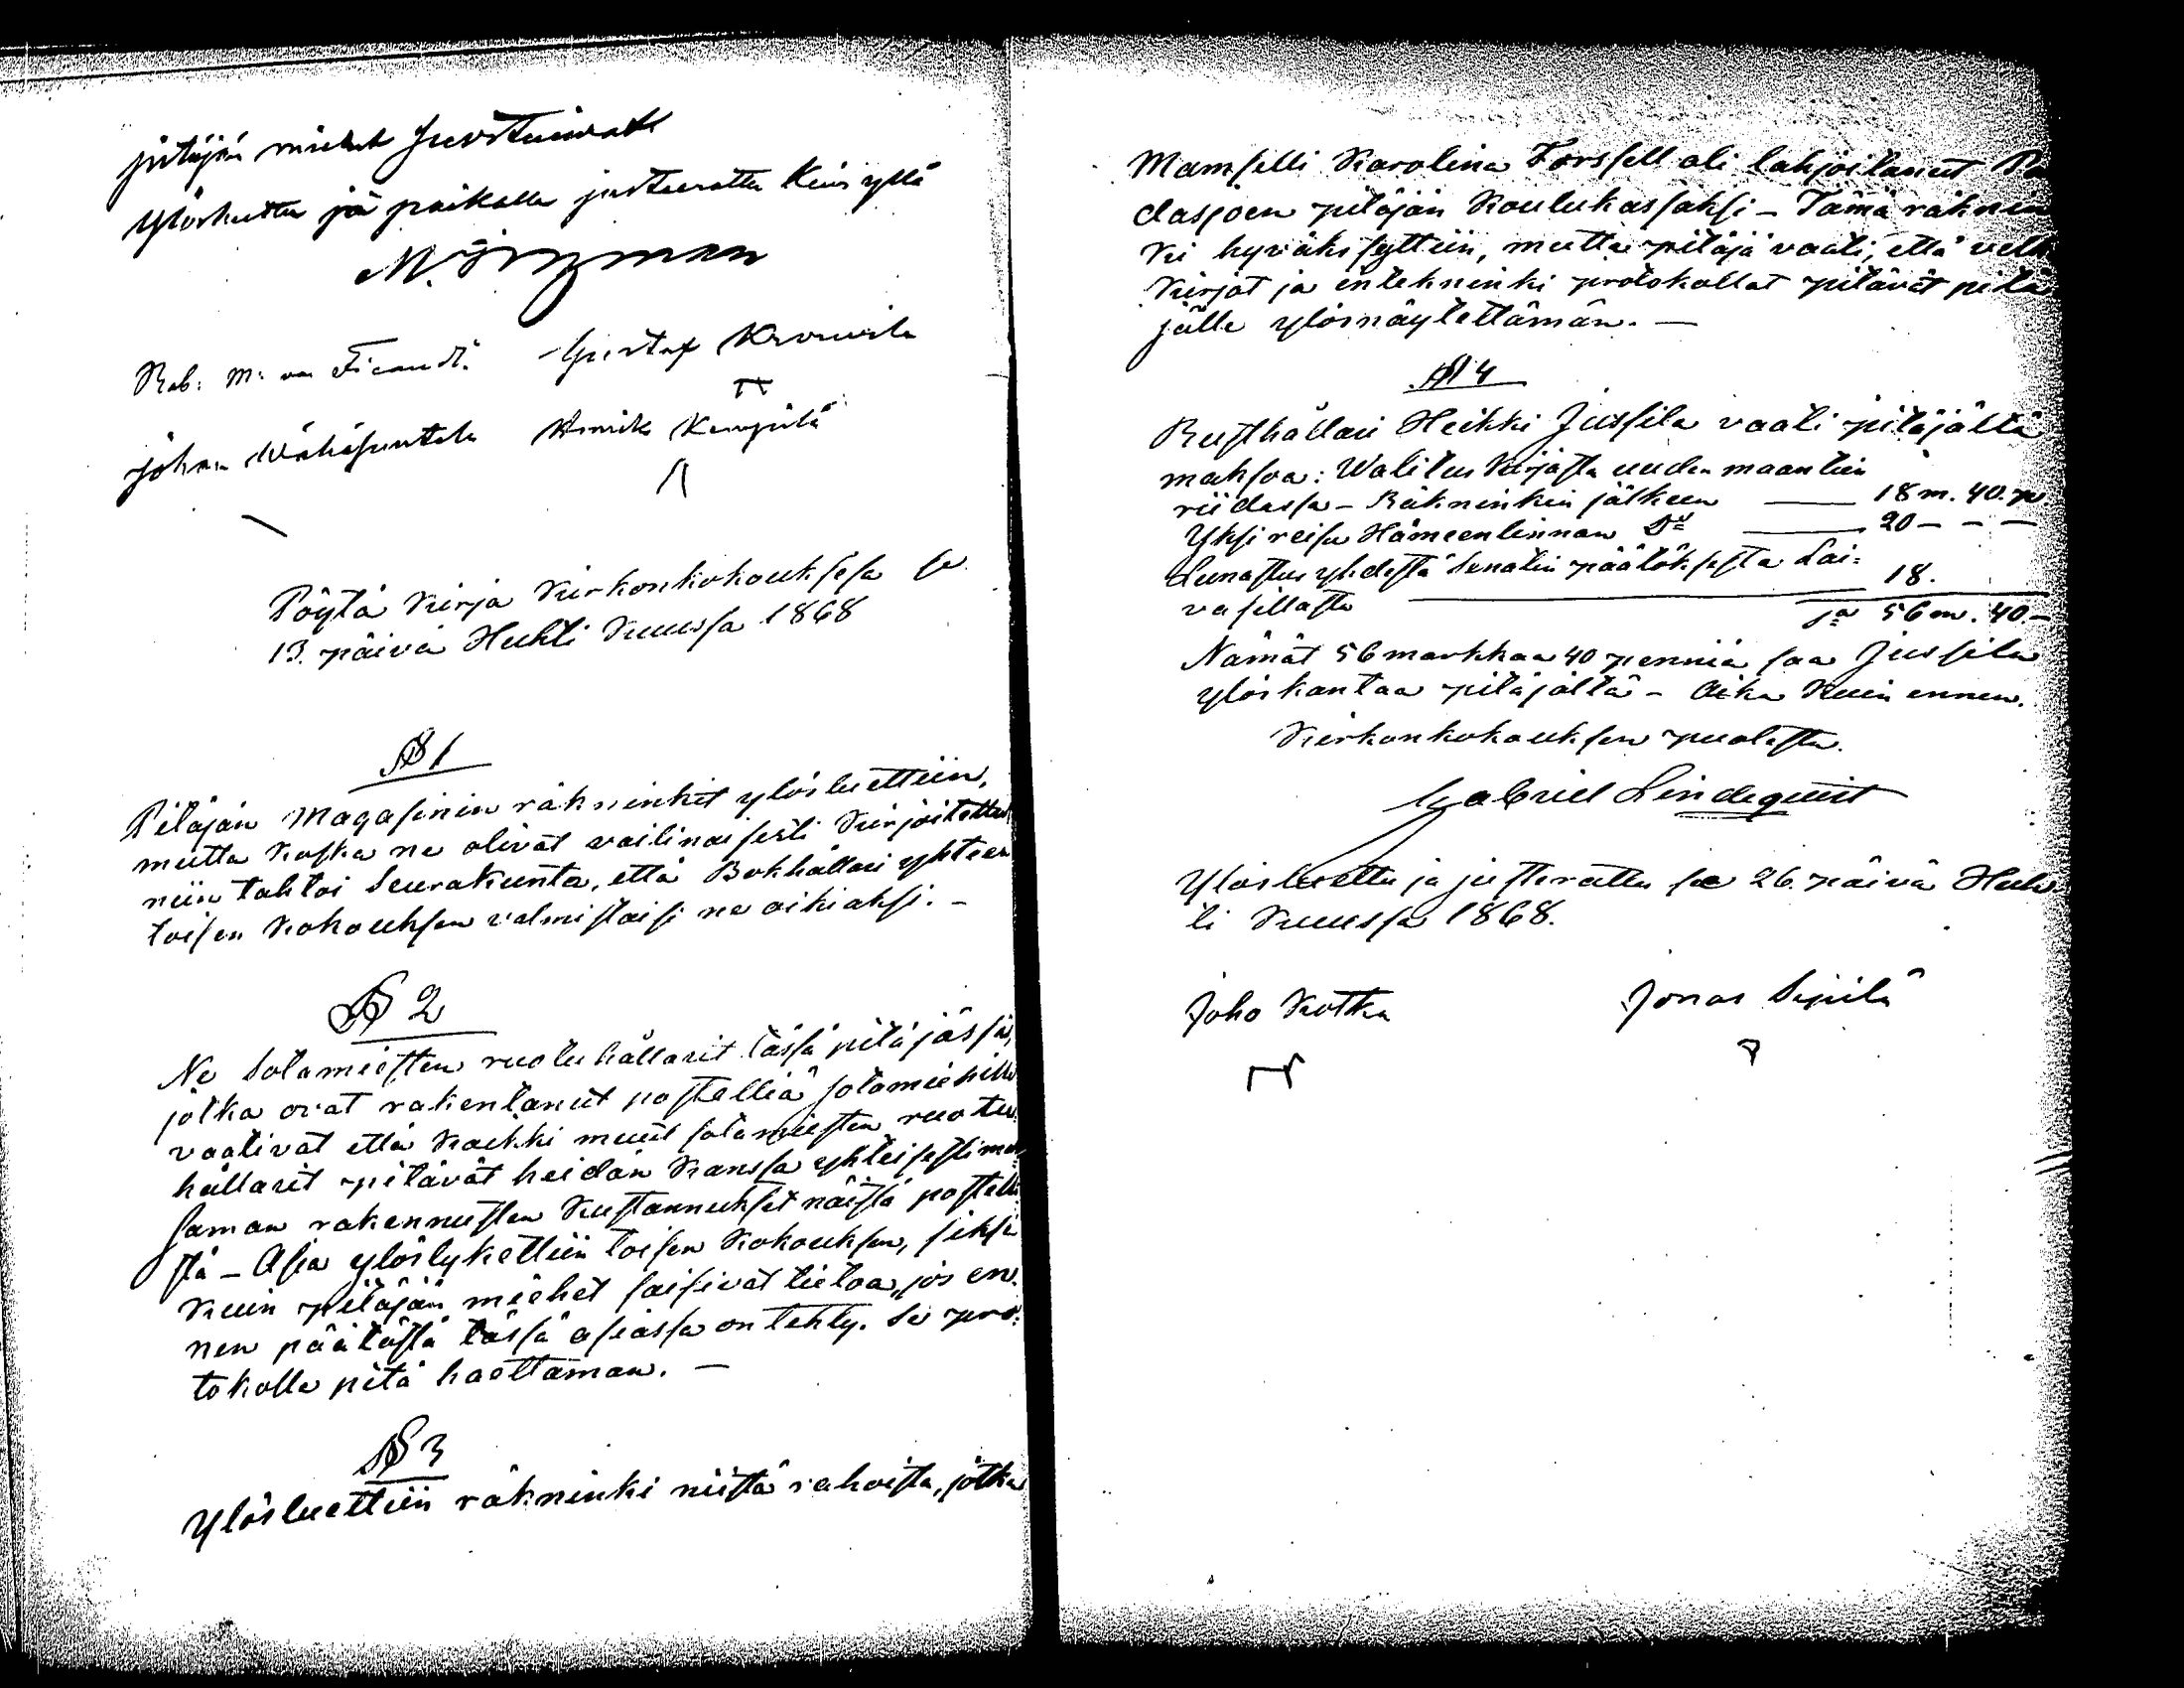 pitäjän miehet suostuivat
Ylösluettu ja paikalla justeerattu kuin yllä
Rob: M: von Fieandt. Gustaf
Johan Wähäpuntala Kämpilä
Pöytä Kirja Kirkonkokouksesa se
13. päivä Huhti Kuussa 1868
§ 1
Pitäjän Magasinin räkninkit ylösluettiin,
mutta koska ne olivat vailinaisesti kirjoitettu
niin tahtoi Seurakunta, että Bokhållari yhteen
toisen kokouksen valmistaisi ne oikiaksi. –
§ 2
Ne Sotamiesten ruotuhållarit tässä pitäjässä,
jotka ovat rakentanut postelliä sotamiehille
vaativat että kaikki muut sotamiesten ruotu
hållarit pitävät heidän kanssa yhteisesti mak
saman rakennusten kustannukset näistä postelli
stä – Asia ylöslykettiin toisen kokouksen, siksi
kuin pitäjän miehet saisivat tietoa, jos en
nen päätöstä tässä asiassa on tehty. Se pro:
tokolla pitä haettaman. –
§ 3
Ylösluettiin räkninki niistä rahoista, jotka
Mamselli Karolina Forssell oli lahjoitanut Pa
dasjoen pitäjän Koulukassaksi – Tämä räknin
ki hyväksyttiin, mutta pitäjä vaati, että velka
kirjat ja inteckninki protokollat pitävät pitä
jälle ylösnäytettämän. –
§ 4
Rusthållari Heikki Jussila vaati pitäjältä
maksoa: Walitus kirjasta uuden maantien
riidassa – Räkninkin jälkeen — 18 m. 40. p
Yksi reisu Hämeenlinnan Do — 20 – – –
Lunastus yhdestä Senatin päätöksesta Lai-
vasillasta — 18.
Sa 56 m. 40. –
Nämät 56 markkaa 40 penniä saa Jussila
ylöskantaa pitäjältä – Aika kuin ennen.
Kirkonkokouksen puolesta.
Gabriel Lindequist
Ylösluettu ja justerattu se 26. päivä Huh
ti Kuussa 1868.
Joho Kotka Jonas Sipilä